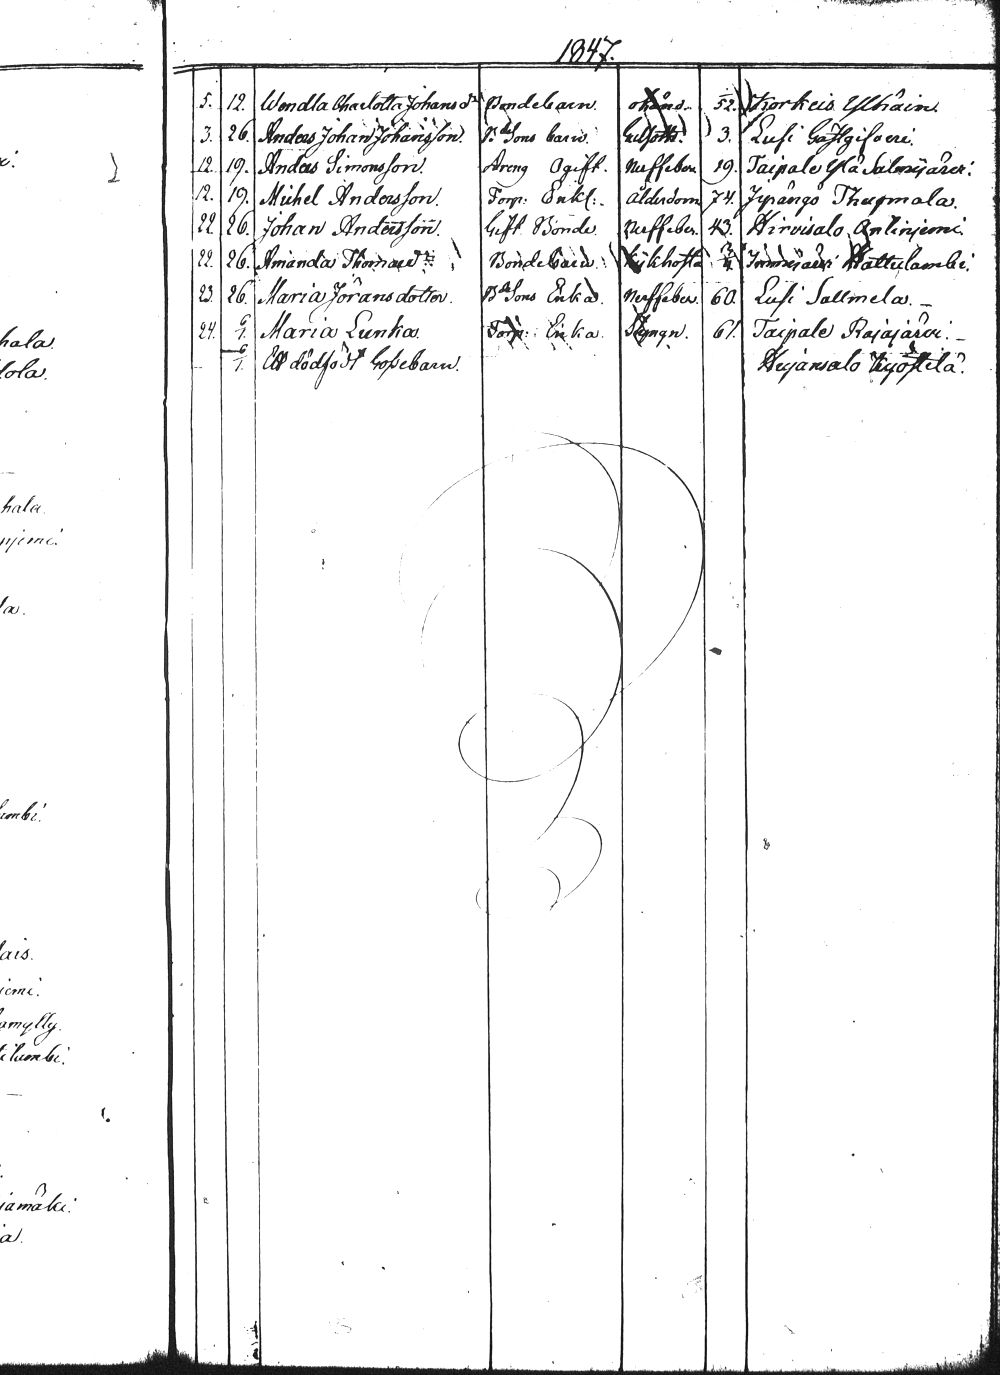 1847.
5. 12. Wendla Charlotta Johans dr Bondebarn okänd. 52. Korkeis Ylhäin.
3. 26. Anders Johan Johansson. Bde Sons barn Gulsot. 3. Lusi Gästgifveri.
12. 19. Anders Simonsson. Dreng Ogift. Nerffeber 19. Taipale Ylä Salmijärvi.
12. 19. Michel Andersson. Torp: Enkl: Ålderdom 74. Jipängö Thepmala.
22. 26. Johan Andersson. Gift Bonde Nerffeber. 43. Hirvisalo Anlinjemi
22. 26. Amanda Thomasdr Bondebarn Kikhosta Hattulambi.
23. 26. Maria Jörans dotter. Bde Sons Enka. Nerffeber 60. Lusi Sallmela. –
24. 6/1. Maria Lunka Torp: Enka. Styngn. 61. Taipale Rajajärvi. –
– 6/1. Ett dödfödt Gossebarn. Heijansalo
hala.
lola.
hala.
njemi.
la.
lambi.
lais.
jemi.
amylly.
ilambi.
jamäki.
ia.